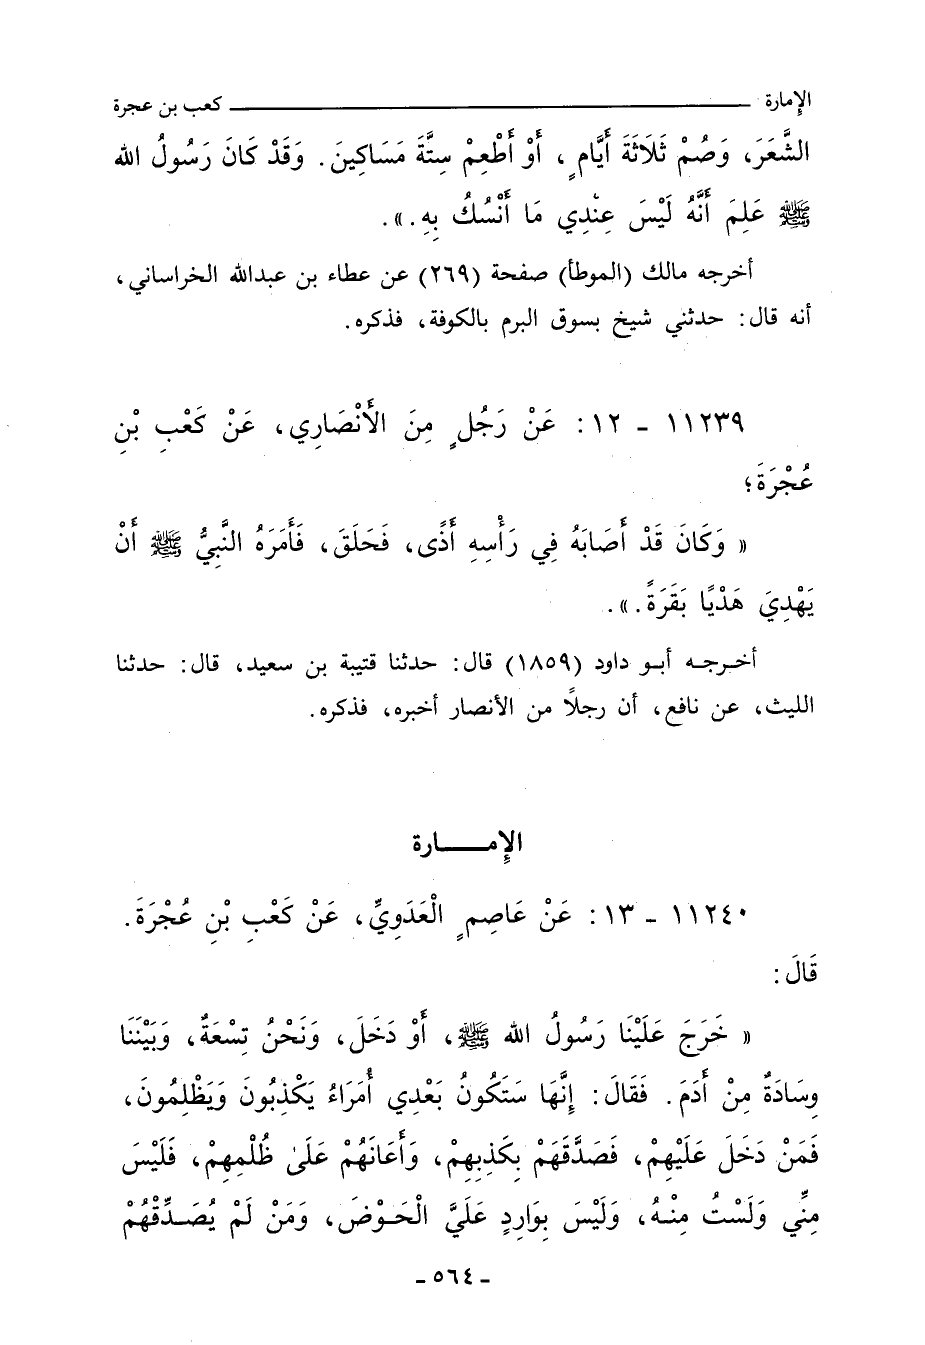 الإمارة ــــــــــــ كعب بن عجرة
الشَّعَرَ، وَصُمْ ثَلَاثَةَ أَيَّامٍ، أَوْ أَطْعِمْ سِتَّةَ مَسَاكِينَ. وَقَدْ كَانَ رَسُولُ الله
ﷺ عَلِمَ أَنَّهُ لَيْسَ عِنْدِي مَا أَنْسُكُ بِهِ.».
أخرجه مالك (الموطأ) صفحة (٢٦٩) عن عطاء بن عبدالله الخراساني،
أنه قال: حدثني شيخ بسوق البرم بالكوفة، فذكره.
١١٢٣٩ - ١٢: عَنْ رَجُلٍ مِنَ الأَنْصَارِي، عَنْ كَعْبِ بْنِ
عُجْرَةَ؛
« وَكَانَ قَدْ أَصَابَهُ فِي رَأْسِهِ أَذًى، فَحَلَقَ، فَأَمَرَهُ النَّبِيُّ ﷺ أَنْ
يَهْدِيَ هَدْيًا بَقَرَةً.».
أخرجه أبو داود (١٨٥٩) قال: حدثنا قتيبة بن سعيد، قال: حدثنا
الليث، عن نافع، أن رجلًا من الأنصار أخبره، فذكره.
الإمـــــارة
١١٢٤٠ - ١٣: عَنْ عَاصِمٍ الْعَدَوِيِّ، عَنْ كَعْبِ بْنِ عُجْرَةَ.
قَالَ:
« خَرَجَ عَلَيْنَا رَسُولُ الله ﷺ، أَوْ دَخَلَ، وَنَحْنُ تِسْعَةٌ، وَبَيْنَنَا
وِسَادَةٌ مِنْ أَدَمَ. فَقَالَ: إِنَّهَا سَتَكُونُ بَعْدِي أُمَرَاءُ يَكْذِبُونَ وَيَظْلِمُونَ،
فَمَنْ دَخَلَ عَلَيْهِمْ، فَصَدَّقَهَمْ بِكَذِبِهِمْ، وَأَعَانَهُمْ عَلَىٰ ظُلْمِهِمْ، فَلَيْسَ
مِنِّي وَلَسْتُ مِنْهُ، وَلَيْسَ بِوَارِدٍ عَلَيَّ الْحَوْضَ، وَمَنْ لَمْ يُصَدِّقْهُمْ
- ٥٦٤ -